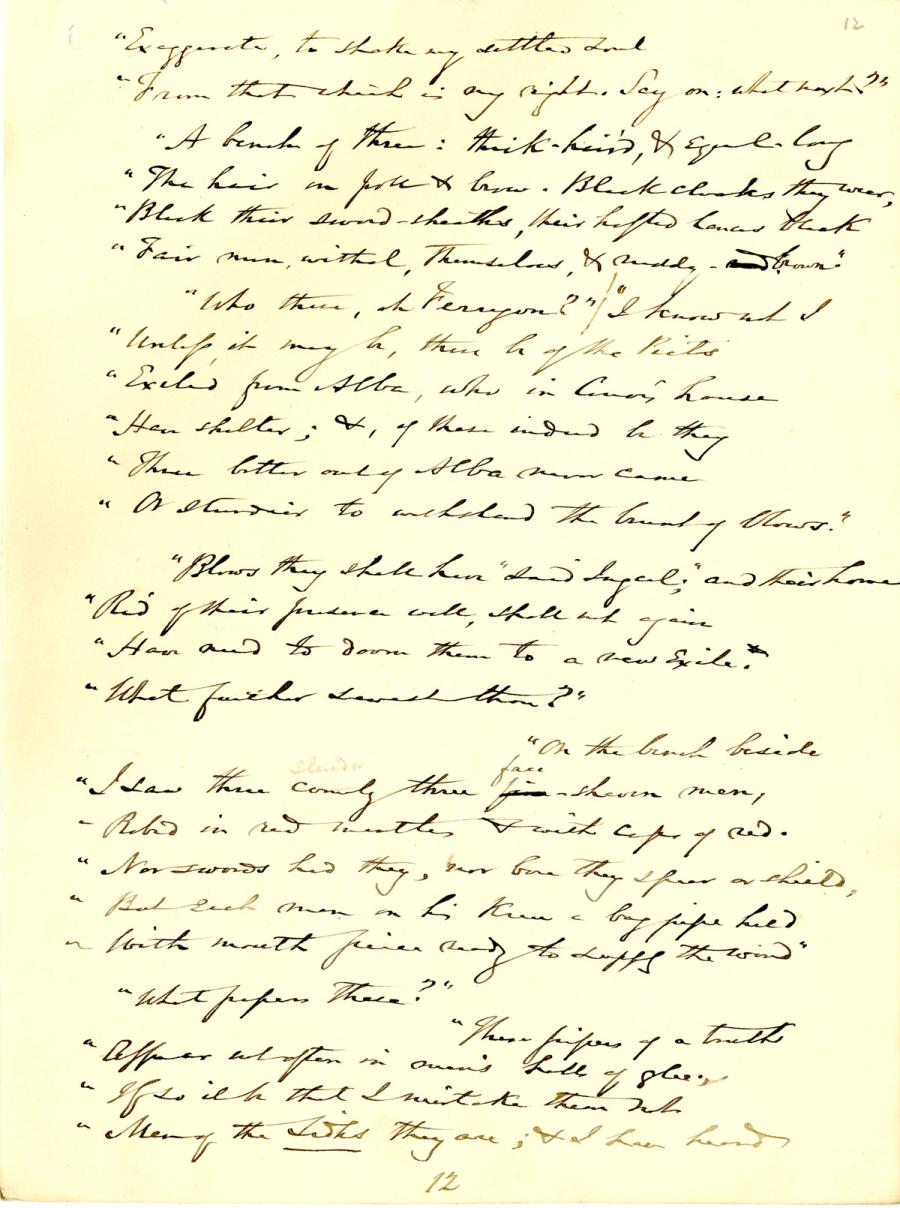 12
"Exaggerate, to shake my settled soul
"From that which is my right. Say on: what next?"
"A bench of three: thick-hair'd, & equal-long
"The hair on poll & brow. Black cloaks they wear,
"Black their sword-sheaths, their hafted lances black
"Fair men, withal, themselves, & ruddy-brown."
"Who these, oh Ferragon?" / "I know not I
"Unless it may be, these be of the Picts
"Exiled from Alba, who in Conor's house
"Have shelter; &, if these indeed be they
"Three better out of Alba never came
"Or sturdier to withstand the brunt of blows."
"Blows they shall have" said Ingcel; "and their home
"Rid of their presence well, shall not again
"Have need to doom them to a new Exile.
"What further sawest thou?"
"On the bench beside
slender face
"I saw three comely three fine-shaven men,
"Robed in red mantles & with caps of red.
"Nor swords had they, nor bore they spear or shield,
"But each man on his knee a bagpipe held
"With mouth piece ready to supply the wind"
"What pipers these?"
"These pipers of a truth
"Appear not often in men's halls of glee.
"If so it be that I mistake them not
"Men of the Sidhs they are; & I have heard
12